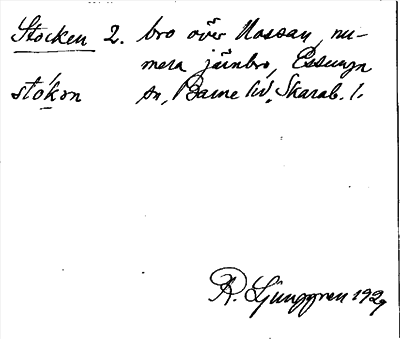 Stocken 2. bro över Nossan, nu-
mera järnbro, Essunga
stókɷn sn, Barne hd, Skarab. l.
R. Ljunggren 1929